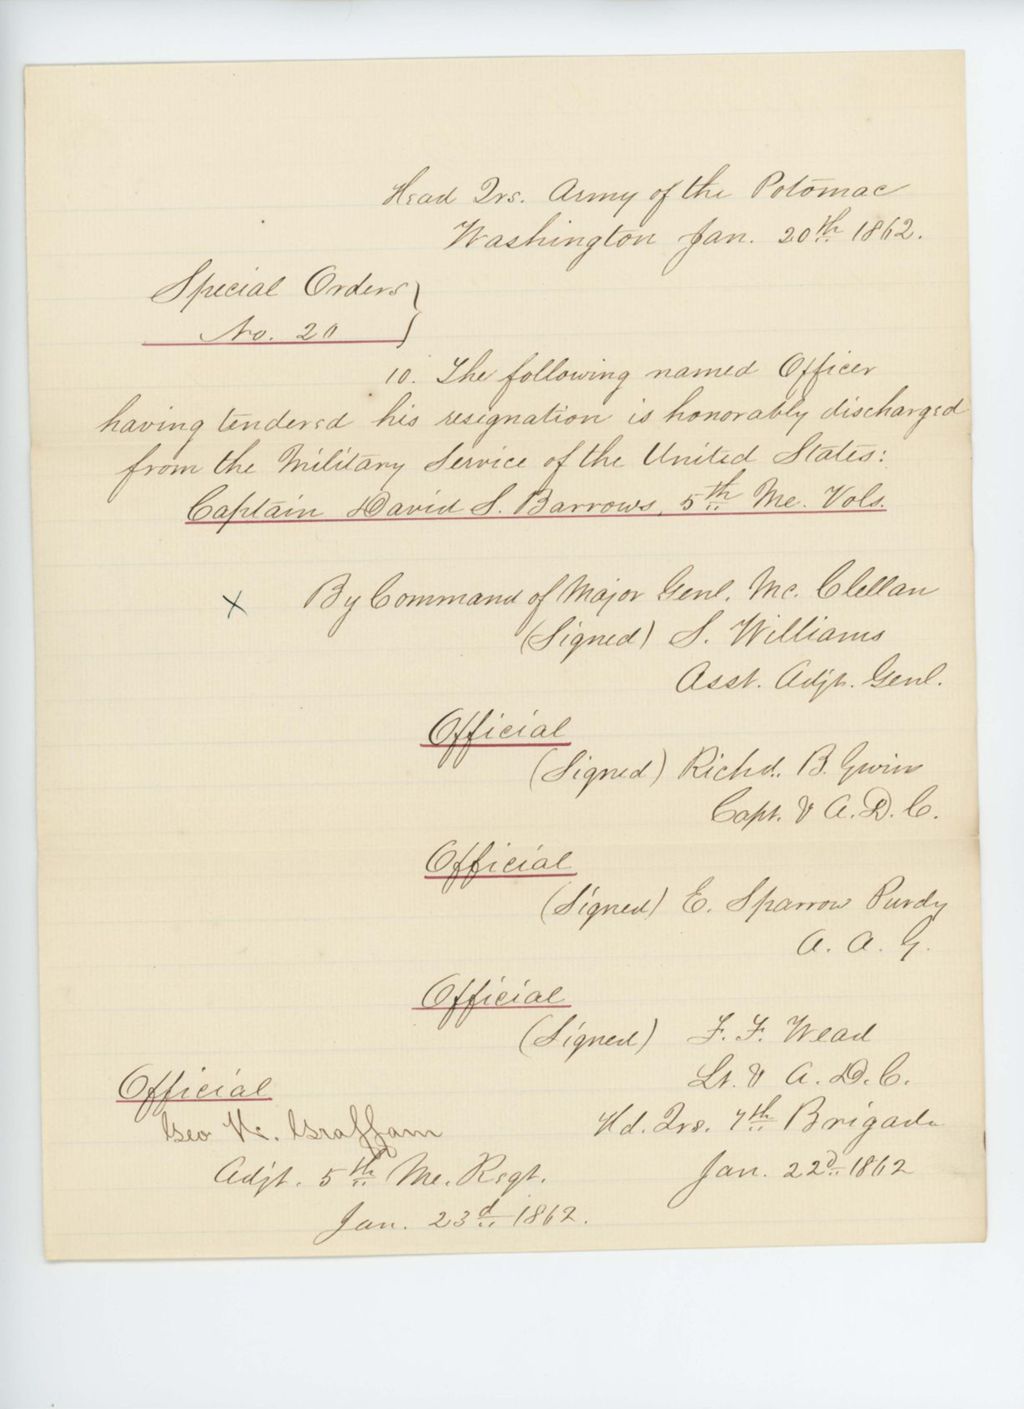 Head Qrs. Army of the Potomac
Washington Jan. 20th 1862.
Special Orders
No. 20
10. The following named Officer
having tendered his resignation is honorably discharged
from the Military Service of the United States:
Captain David S. Barrows, 5th Me. Vols.
x By Command of Major Genl. Mc. Clellan
(Signed) S. Williams
Asst. Adjt. Genl.
Official
(Signed) Richd. B. Irwin
Capt. & A. D. C.
Official
(Signed) E. Sparrow Purdy
A. A. G.
Official
(Signed) F. F. Wead
Lt. & A. D. C.
Hd. Qrs. 7th Brigade
Jan. 22d 1862
Official
Geo W. Graffam
Adjt. 5th Me. Regt.
Jan. 23d 1862.